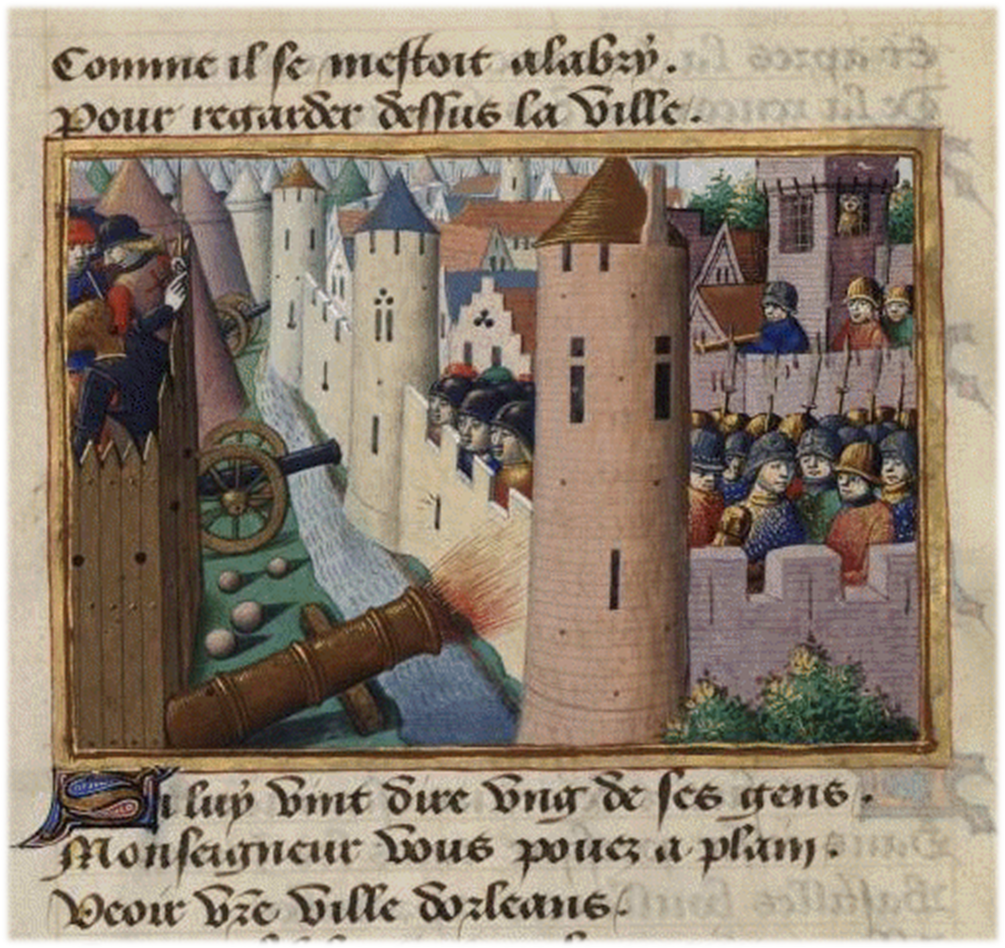 Comme il se mestoit alabry.
Pour regarder dessus la ville.
Si luy vint dire ung de ses gens.
Monseigneur vous pouez a plain.
Veoir vre ville dorleans.